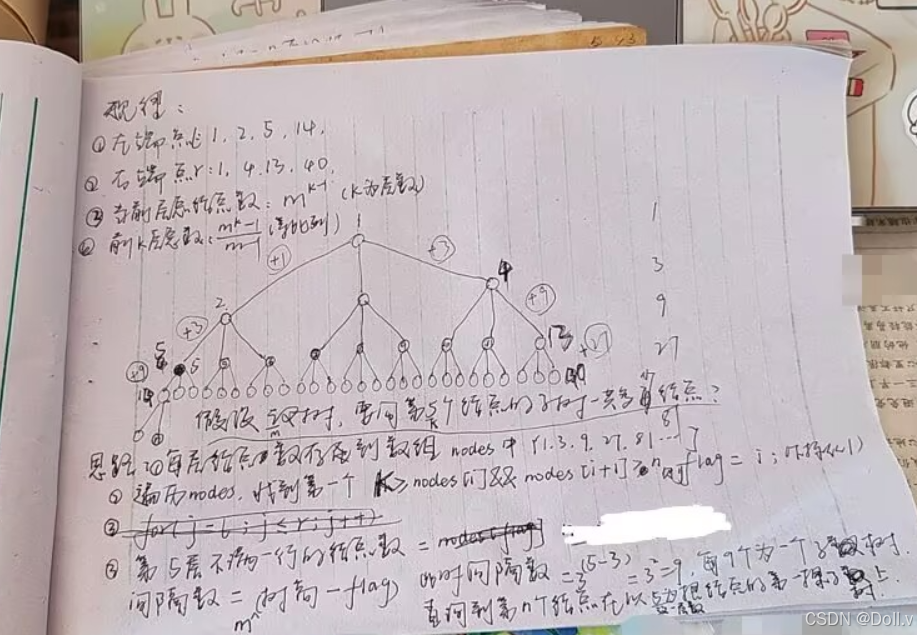 规律:
①左端点l:1, 2, 5, 14,
②右端点r:1, 4, 13, 40,
③当前层总结点数:m^(k-1) (k为层数)
④前k层总数:(m^k-1)/(m-1) (等比数列)
1
+1
+3
1
3
2
4
+3
+9
9
5
5
13
+27
27
+9
14
40
81
假设三叉树,要问第5个结点的子树一共多少结点?
m
思路:①每层结点数存储到数组 nodes 中 {1.3.9.27.81…}
②遍历nodes,找到第一个 k≥nodes[i]&&nodes[i+1] flag=i;
③for(j=l;j≤r;j++)
③第5层不满一行的结点数=nodes[flag]
间隔数=m^(树高-flag) 此时间隔数=3^(5-3)=3^2=9,每9个为一个子树
查询到第n个结点在以 为根结点的第一棵子树上
CSDN @Doll.v